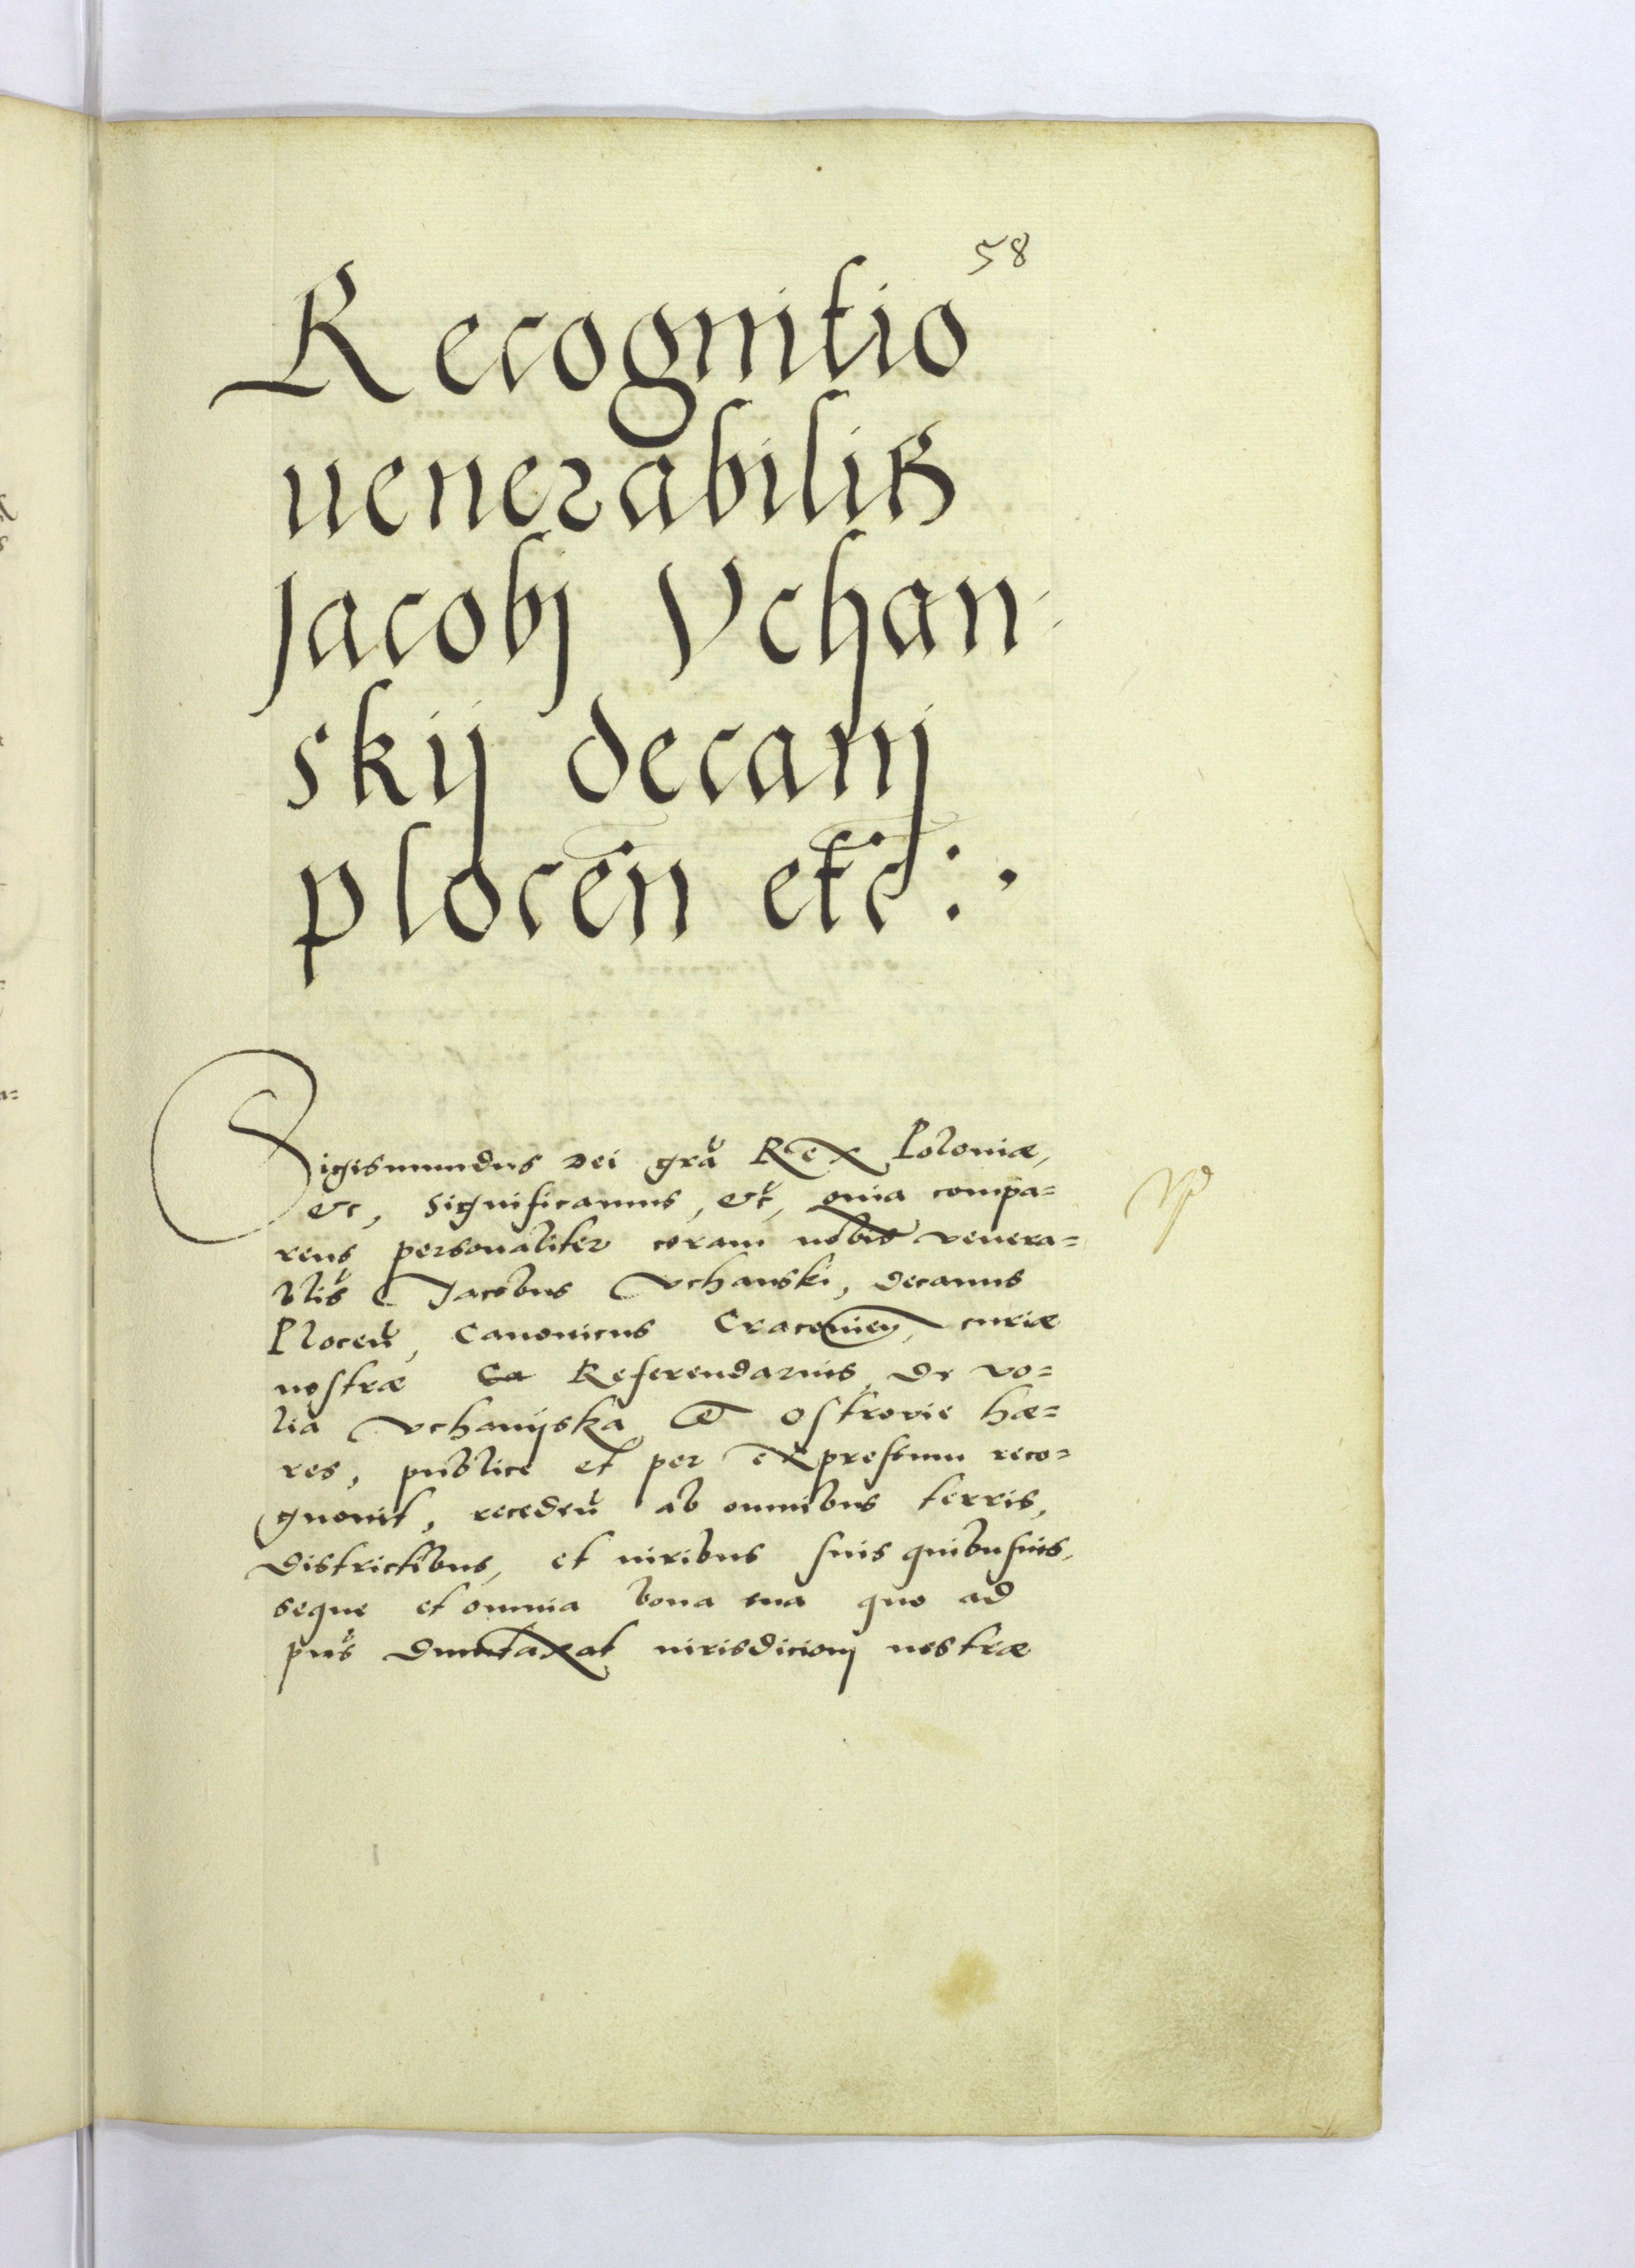 58
Recognitio
uenerabilis
Jacobj Vchan-
skij decanj
plocen̄ etc̄:,
Sigismundus Dei gr̃a Rex Poloniæ,
etc, Significamus, etc̃, quia compa=
rens personaliter coram nobis venera=
blis̃ Jacobus Vchanski, Decanus
Plocen̄, Canonicus Cracouien, curiæ
nostræ Referendarius, De vo=
lia Vchanijska et Ostrovie hæ=
res, publice et per expressum reco=
gnouit, recedeñ ab omnibus terris,
Districtibus, et iuribus suis quibusuis,
seque et omnia bona sua quo ad
pñs Dumtaxat iurisdicionj nostræ